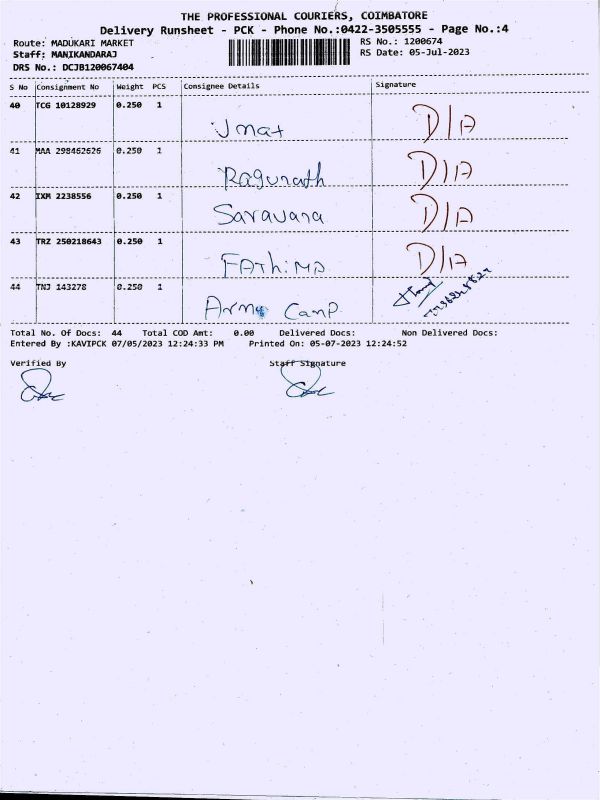 THE PROFESSIONAL COURIERS, COIMBATORE
Delivery Runsheet - PCK - Phone No.:0422-3505555 - Page No.:4
Route: MADUKARI MARKET RS No.: 1200674
Staff: MANIKANDARAJ RS Date: 05-Jul-2023
DRS No.: DCJB120067404
S No Consignment No Weight PCS Consignee Details Signature
40 TCG 10128929 0.250 1
Umat D/A
41 MAA 298462626 0.250 1
Ragunath D/A
42 IXM 2238556 0.250 1
Saravana D/A
43 TRZ 250218643 0.250 1
FAThima D/A
44 TNJ 143278 0.250 1
Army Camp
Total No. Of Docs: 44 Total COD Amt: 0.00 Delivered Docs: Non Delivered Docs:
Entered By :KAVIPCK 07/05/2023 12:24:33 PM Printed On: 05-07-2023 12:24:52
Verified By Staff Signature